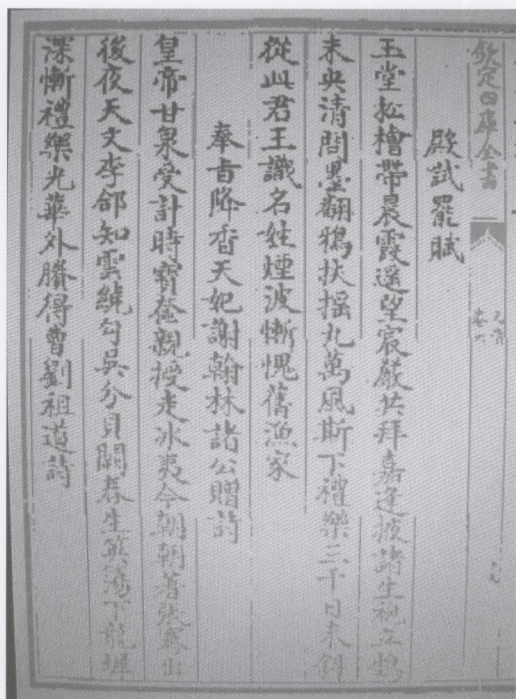 欽定四庫全書
元音
卷六
殿試罷賦
玉堂松檜帶晨霞遥望宸嚴共拜嘉逢掖諸生視立鵠
未央清問墨翻鴉扶摇九萬風斯下禮樂三千日未斜
從此君王識名姓煙波慚愧舊漁家
奉㫖降香天妃謝翰林諸公贈詩
皇帝甘泉受計時寶奩親授走冰夷今朝朝著張騫出
後夜天文李郃知雲繞勾吳分貝闕春生英蕩下龍墀
深慚禮樂光華外賸得曹劉祖道詩